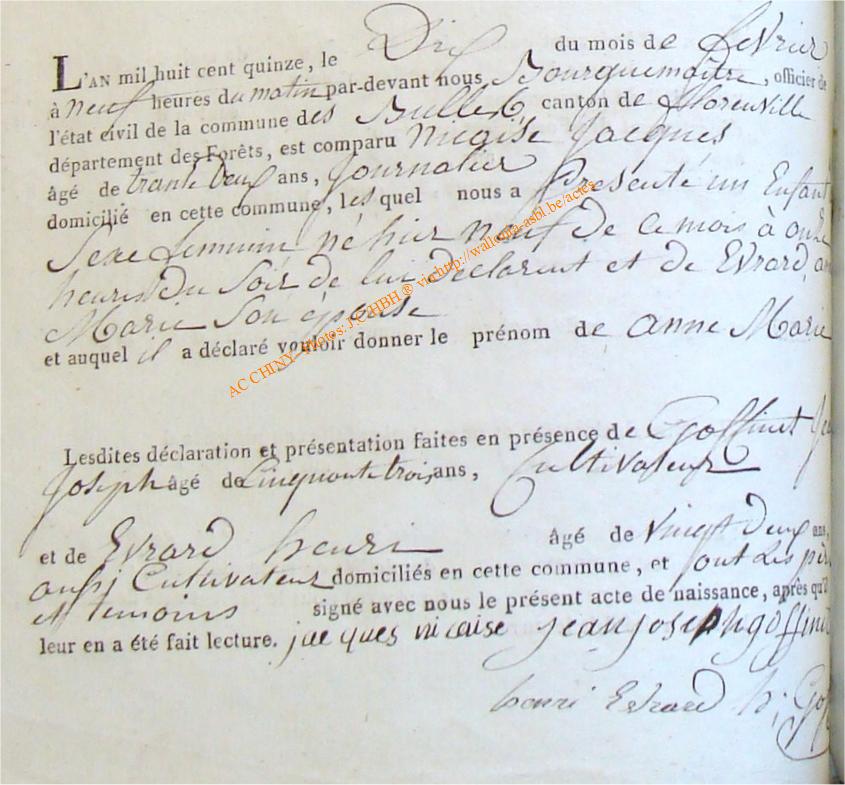 L'AN mil huit cent quinze, le Dix du mois de fevrier
à neuf heures du matin par-devant nous Bourguemaitre, officier de
l'état civil de la commune des Bulles, canton de florenville
département des Forêts, est comparu nicaise Jacques
âgé de trante deux ans, Journalier
domicilié en cette commune, lesquel nous a presenté un Enfant
Sexe feminin né hier neuf de ce mois à onze
heures du Soir de lui declarent et de Evrard
Marie Son épouse
et auquel il a déclaré vouloir donner le prénom de anne Marie
Lesdites déclaration et présentation faites en présence de Goffinet
Joseph âgé de Cinquante trois ans, Cultivateur
et de Evrard henri âgé de vingt deux ans,
aussi Cultivateur domiciliés en cette commune, et ont Les
et temoins signé avec nous le présent acte de naissance, après qu'il
leur en a été fait lecture. jacques nicaise jean joseph goffinet
henri Evrard h;
AC CHINY - Photos: J-C HBH ® via http://wallonia-asbl.be/actes